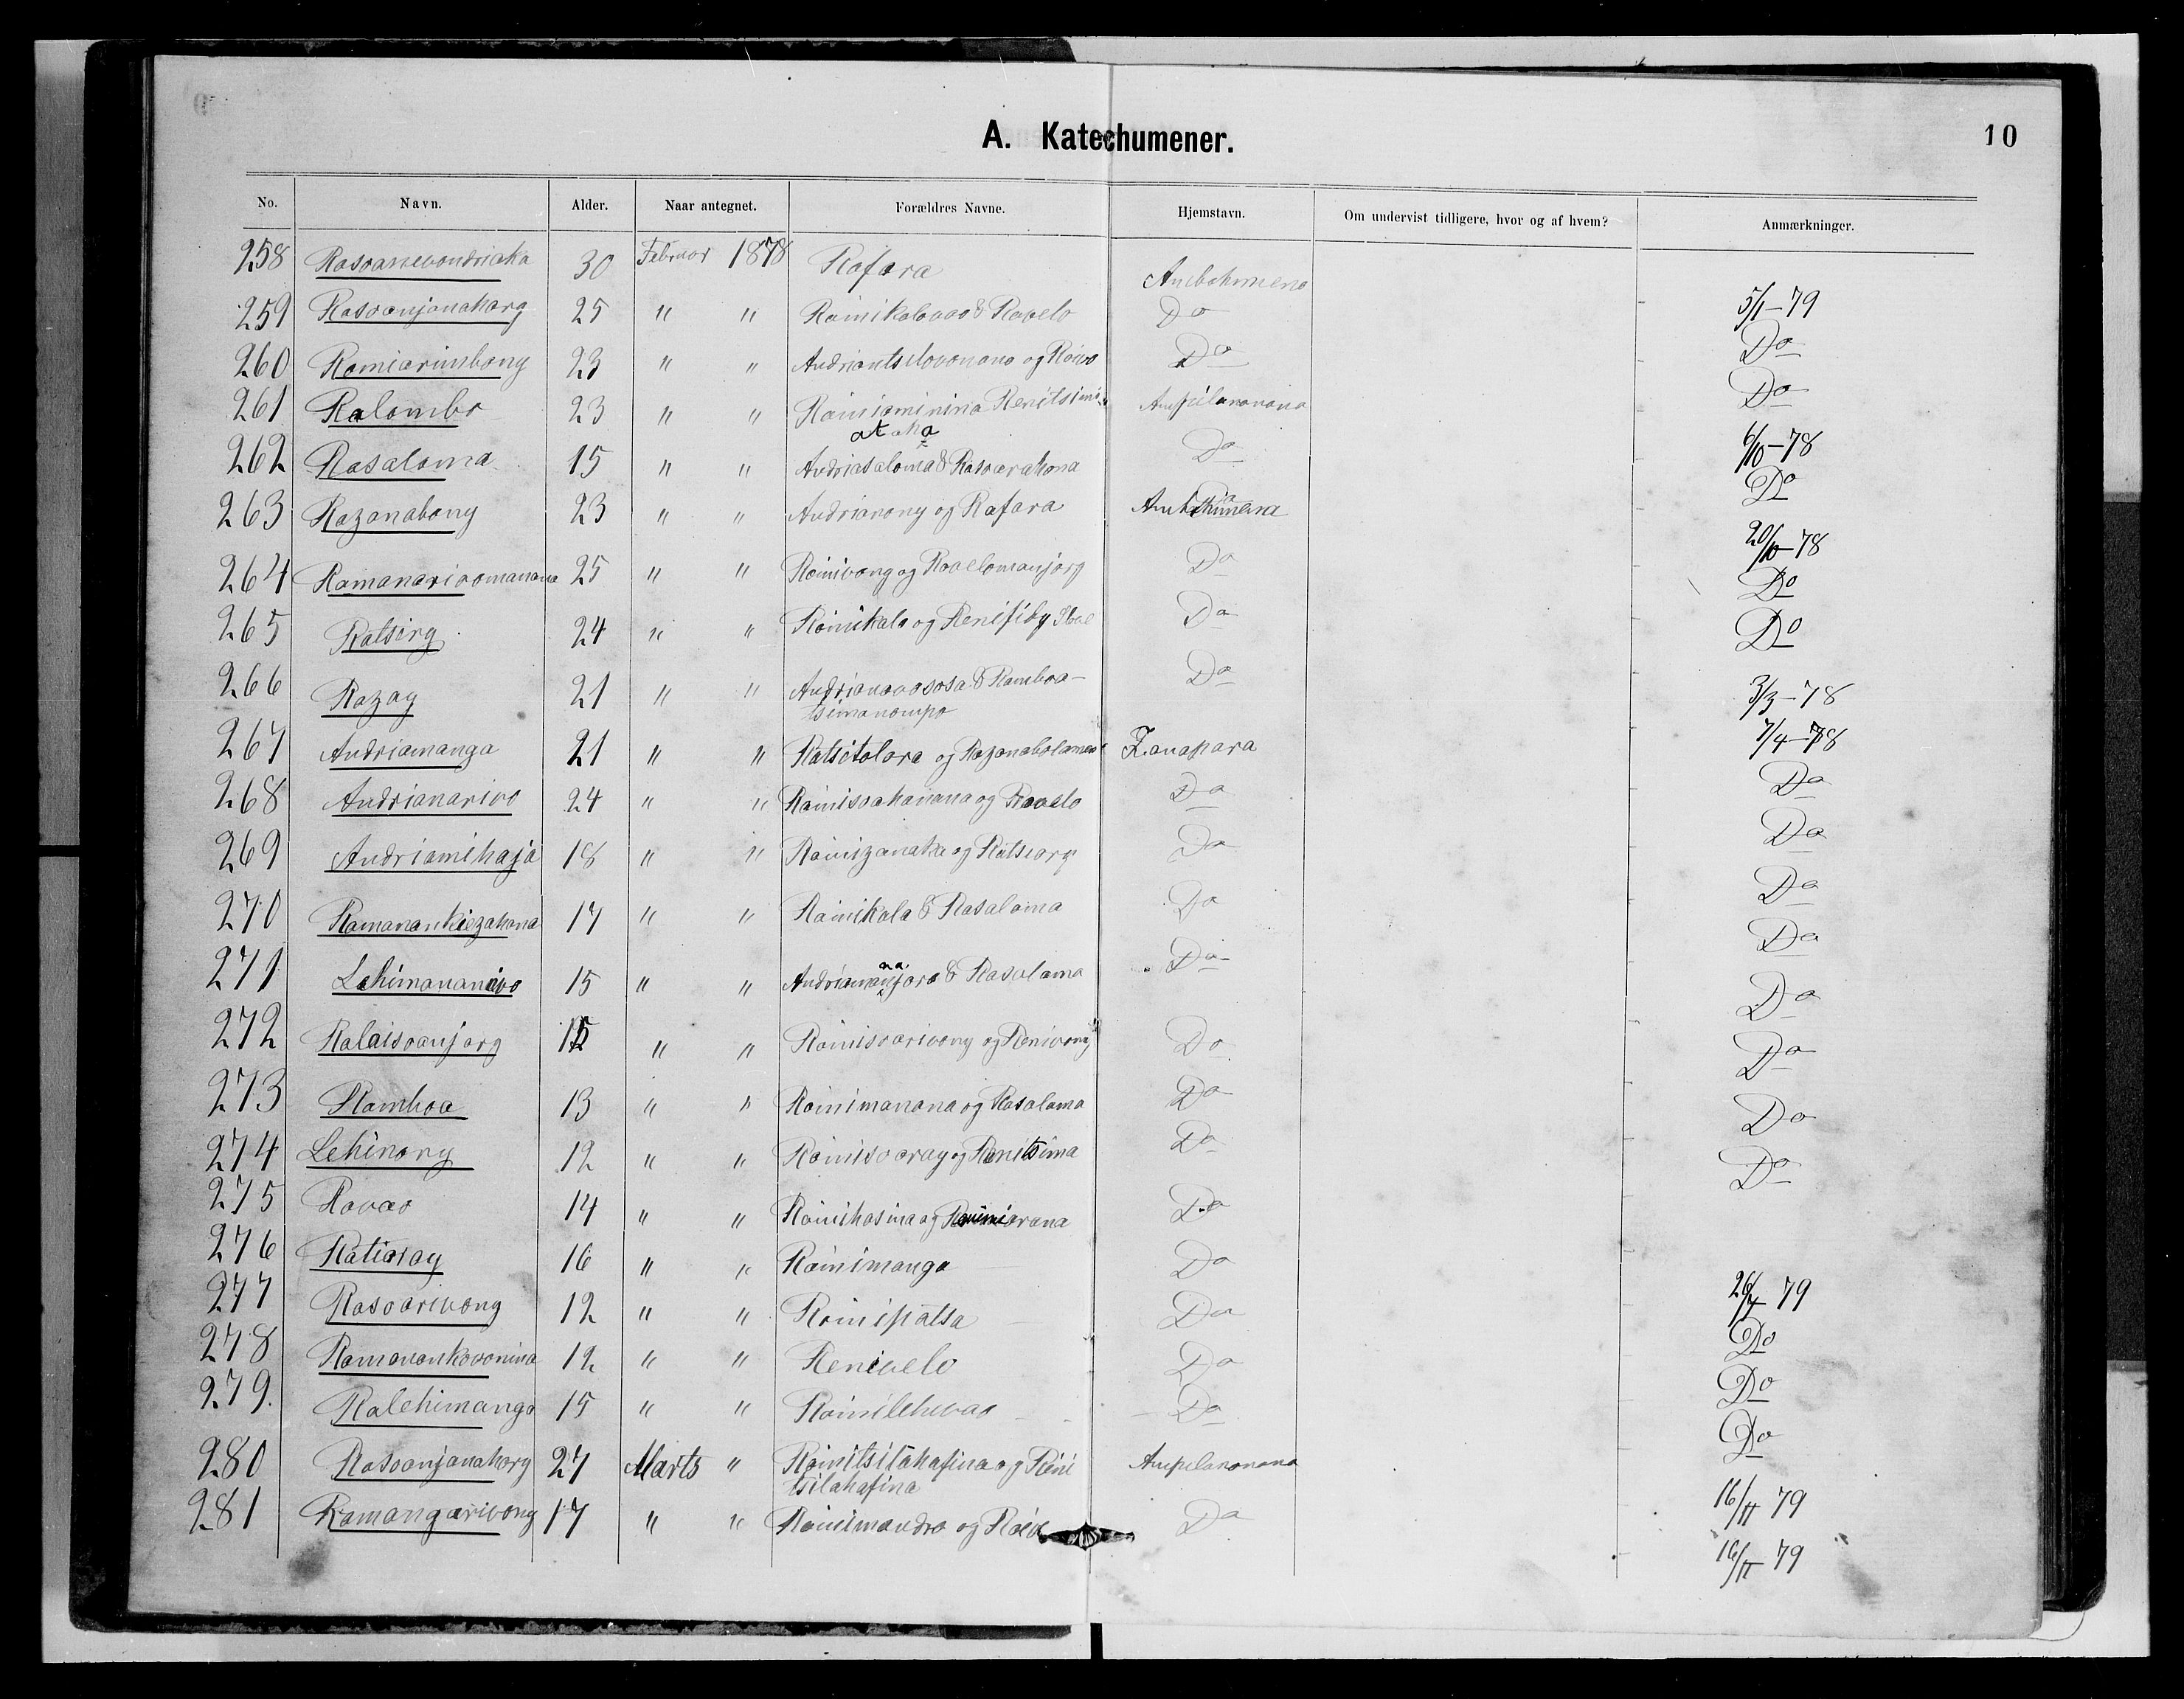 A. Katechumener.
10
No. Navn. Alder. Naar antegnet. Forældres Navne. Hjemstavn. Om undervist tidligere, hvor og af hvem? Anmærkninger.
258 30 Februar 1878 Rafara Ambohimena
5/1-79
259 Rasoanjanahary 25 " " Rainikalovao & Ravelo Do
Do
260 Ramiarimbony 23 " " og Raivo Do
Do
261 Ralambo 23 " " Rainiaminina Ampilanonana
6/10-78
262 Rasalama 15 " " Andriasalama & Rasoarahona Do
Do
263 Razanabony 23 " " Andrianony og Rafara Ambohimena
20/10-78
264 Ramanarivomanana 25 " " Rainivony og Ravelomanjary Do
Do
265 Ratsiry 24 " " Rainikala og Renifiby Do
Do
266 Razay 21 " " & Ramboa-
tsimanompo Do
3/3-78
267 Andriamanga 21 " " Ratsitolora og Zanapara
7/4-78
268 Andrianarivo 24 " " Rainisoahanana og Ravelo Do
Do
269 Andriamihaja 18 " " Rainizanaka og Do
Do
270 Ramanankiezahana 17 " " Rainikala & Rasalama Do
Do
271 Lehimananivo 15 " " & Rasalama Do
Do
272 Ralaisoanjary " " Rainisoarivony og Renivony Do
Do
273 Ramboa 13 " " Rainimanana og Rasalama Do
Do
274 Lehinony 12 " " Rainisoaray og Renitsima Do
Do
275 Ravao 14 " " Rainihosina og Do
Do
276 Ratiaray 16 " " Rainimanga Do
277 Rasoarivony 12 " " Rainipatsa Do
79
278 Ramanankovonina 12 " " Renivelo Do
Do
279. Ralehimanga 15 " " Rainilehivao Do
Do
280 Rasoanjanahary 27 Marts " Rainitsilahafina og Reni
tsilahafina Ampilanonana
Do
281 Ramangarivony 17 " " Rainimandro og Do
16/11 79
16/11 79